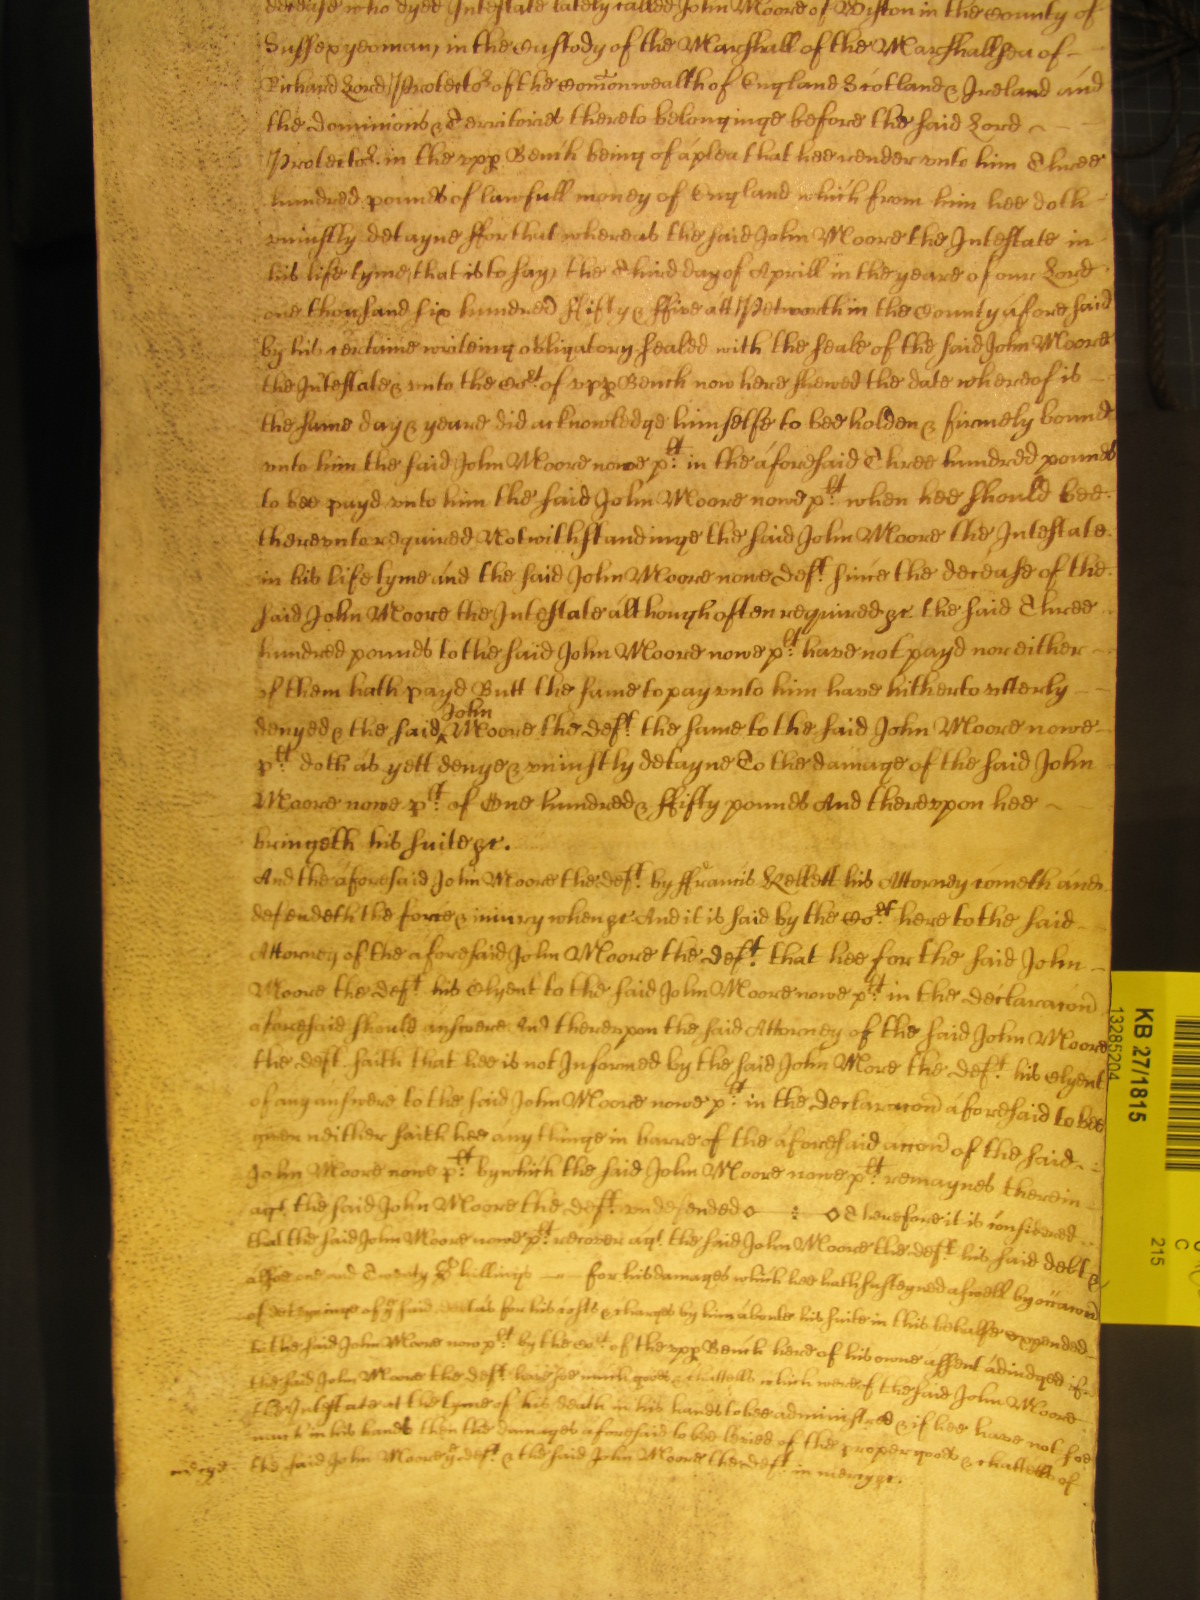 decease who dyed Intestate lately called John Moore of Wiston in the County of
Sussex yeoman, in the Custody of the Marshall of the Marshallsea of
Richard Lord Protector of the Comonwealth of England Scotland & Ireland and
the dominions & Territories thereto belonginge before the said Lord
Protector. in the vpp Bench being of a plea that hee render vnto him Three
hundred pounds of lawfull money of England which from him hee doth
vniustly detayne ffor that whereas the said John Moore the Intestate in
his life tyme, that is to say, the Third day of Aprill in the yeare of our Lord
one thousand six hundred ffifty & ffive att Petworth in the County aforesaid
by his certaine writeing obligatory sealed with the seale of the said John Moore
the Intestate & vnto the Cort of vpp Bench now here shewed the date whereof is
the same day & yeare did acknowledge himselfe to bee holden & firmely bound
vnto him the said John Moore nowe plt. in the aforesaid Three hundred pounds
to bee payd vnto him the said John Moore nowe plt. when hee should bee
therevnto required Notwithstandinge the said John Moore the Intestate
in his life tyme and the said John Moore nowe Deft. since the decease of the
said John Moore the Intestate although often required &c. the said Three
hundred pounds to the said John Moore nowe plt. have not payd nor either
of them hath payd Butt the same to pay vnto him have hitherto vtterly
John
denyed & the said Moore the Deft. the same to the said John Moore nowe
plt. doth as yett denye & vniustly detayne To the damage of the said John
Moore nowe plt. of One hundred & ffifty pounds And therevpon hee
bringeth his suite &c.
And the aforesaid John Moore the Deft. by ffrancis Kellett his Attorney cometh and
defendeth the force & iniury when &c And it is said by the Cort here to the said
Attorney of the aforesaid John Moore the Deft. that hee for the said John
Moore the Deft. his Clyent to the said John Moore nowe plt. in the declaracon
aforesaid should answere And therevpon the said Attorney of the said John Moore
the deft. saith that hee is not Informed by the said John More the Deft. his Clyent
of any answere to the said John Moore nowe plt. in the Declaracon aforesaid to bee
given neither saith hee any thinge in barre of the aforesaid accon of the said
John Moore nowe plt. by which the said John Moore nowe plt. remaynes therein
agt. the said John Moore the Deft. vndefended Therefore it is considered
that the said John Moore nowe plt. recover agt. the said John Moore the deft. his said debt &
alsoe one and Twenty shillings for his damages which hee hath susteyned aswell by occacon
of deteyninge of ye said debt as for his costs & charges by him aboute his suite in this behalfe expended
to the said John Moore now plt. by the Cort. of the vpp Bench here of his owne assent adiudged if
the said John Moore the deft. have soe much goods & chattells which were of the said John Moore
the Intestate at the tyme of his death in his hands to bee administred & if hee have not soe
much in his hands then the damages aforesaid to bee levied of the proper goods & chattells of
the said John Moore ye deft. & the said John Moore the deft. in mercy &c.
KB 27/1815
13285204
215